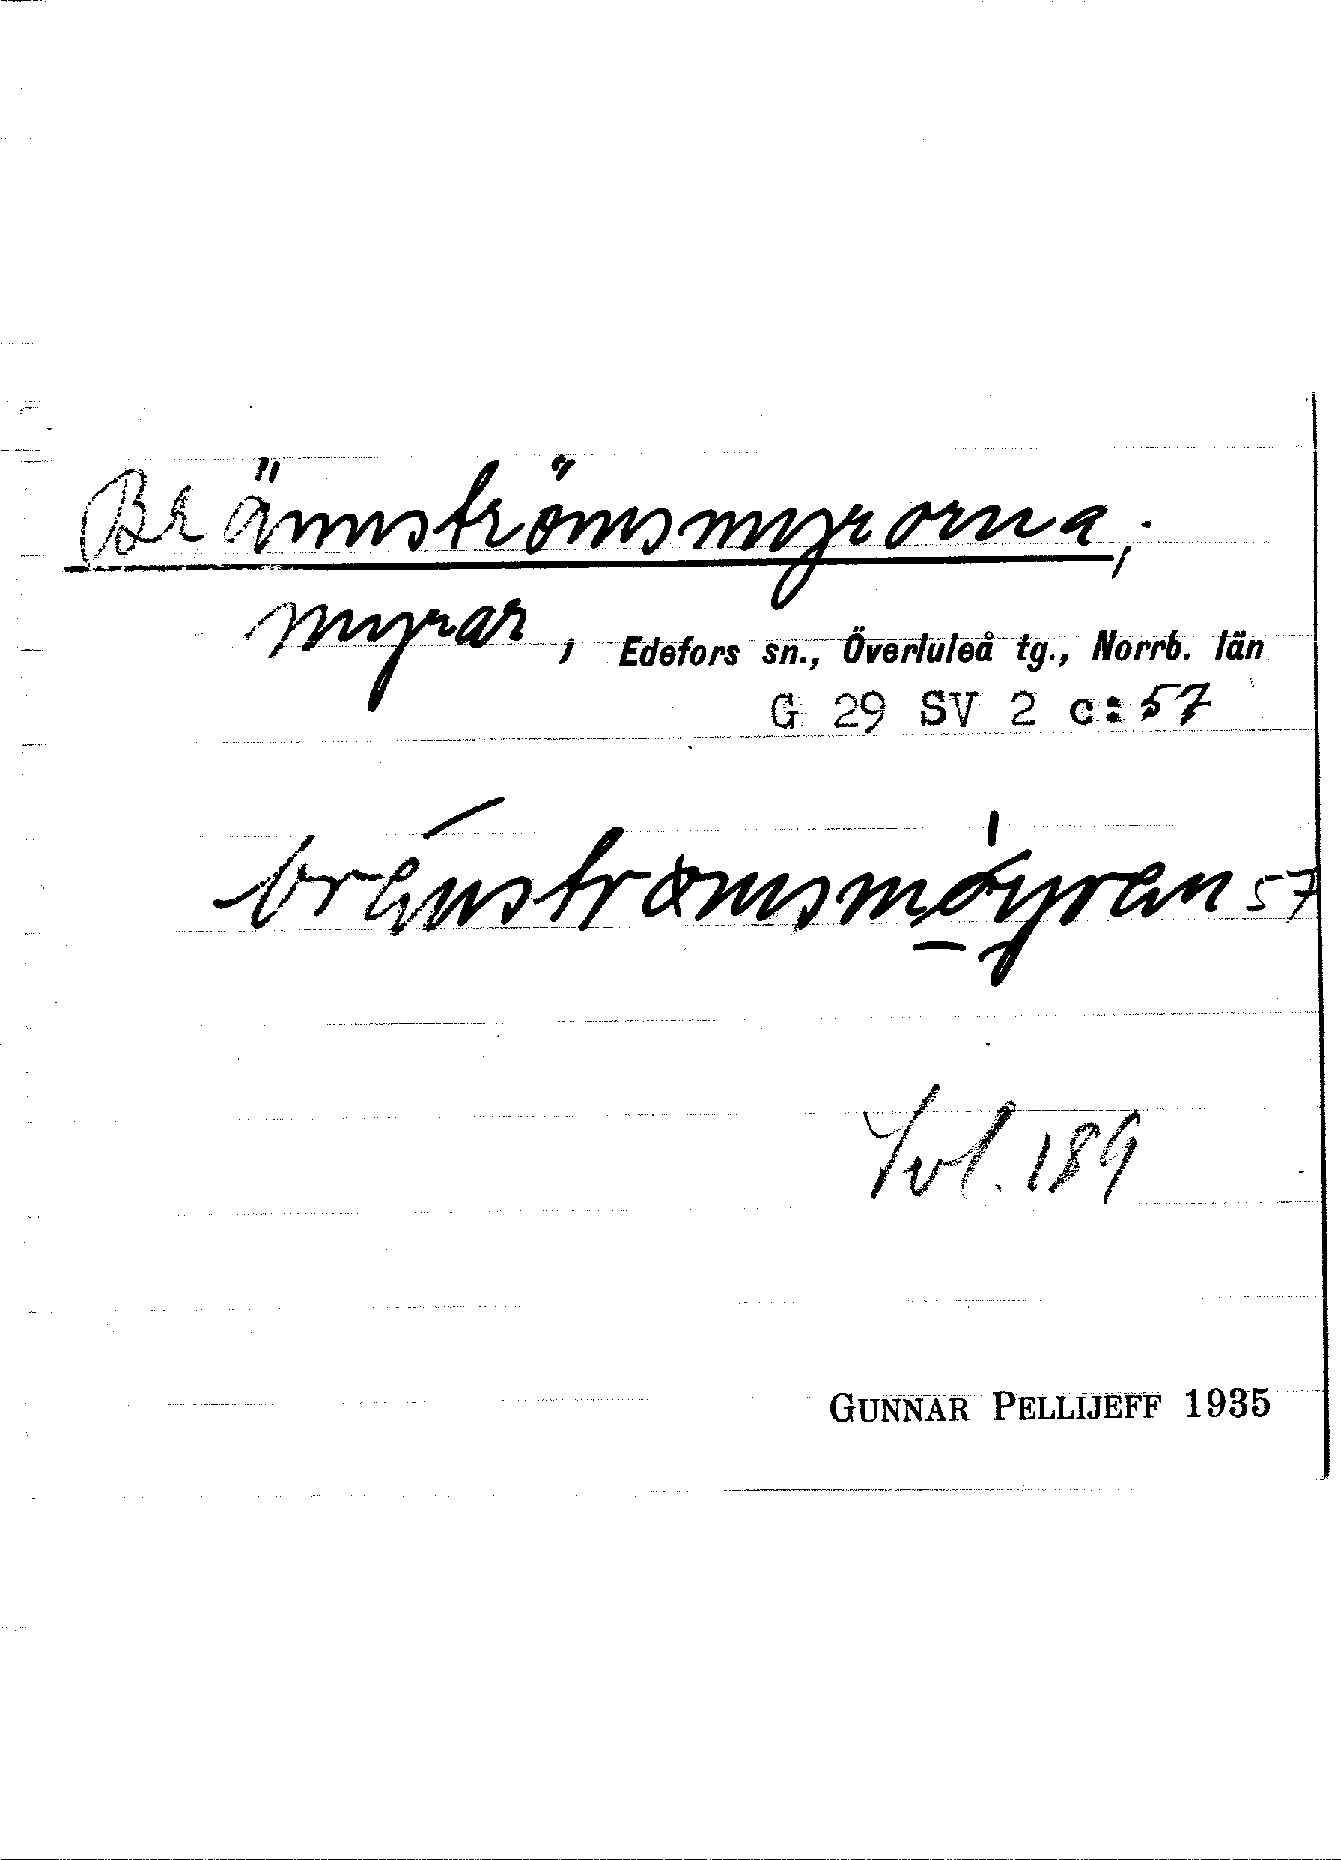 Brännströmsmyrorna;
myrar, Edefors sn., Överluleå tg., Norrb. län
G 29 SV 2 c:57
57
189
GUNNAR PELLIJEFF 1935